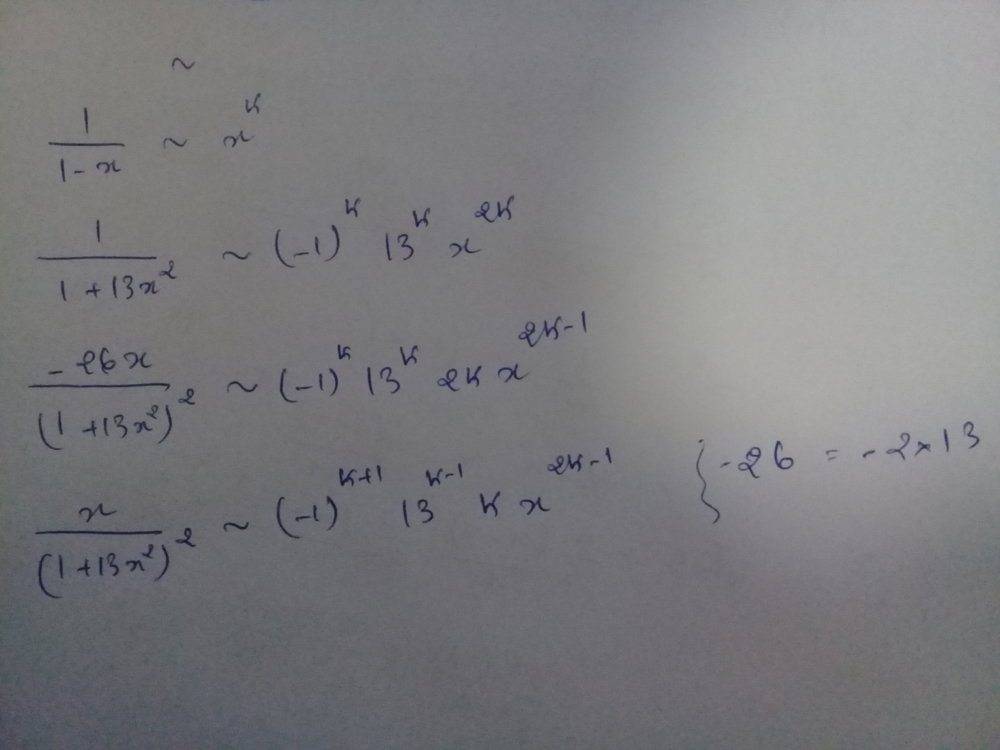 ~
1/(1-x) ~ x^K
1/(1+13x^2) ~ (-1)^K 13^K x^(2K)
-26x/(1+13x^2)^2 ~ (-1)^K 13^K 2K x^(2K-1)
x/(1+13x^2)^2 ~ (-1)^(K+1) 13^(K-1) K x^(2K-1) { -26 = -2×13